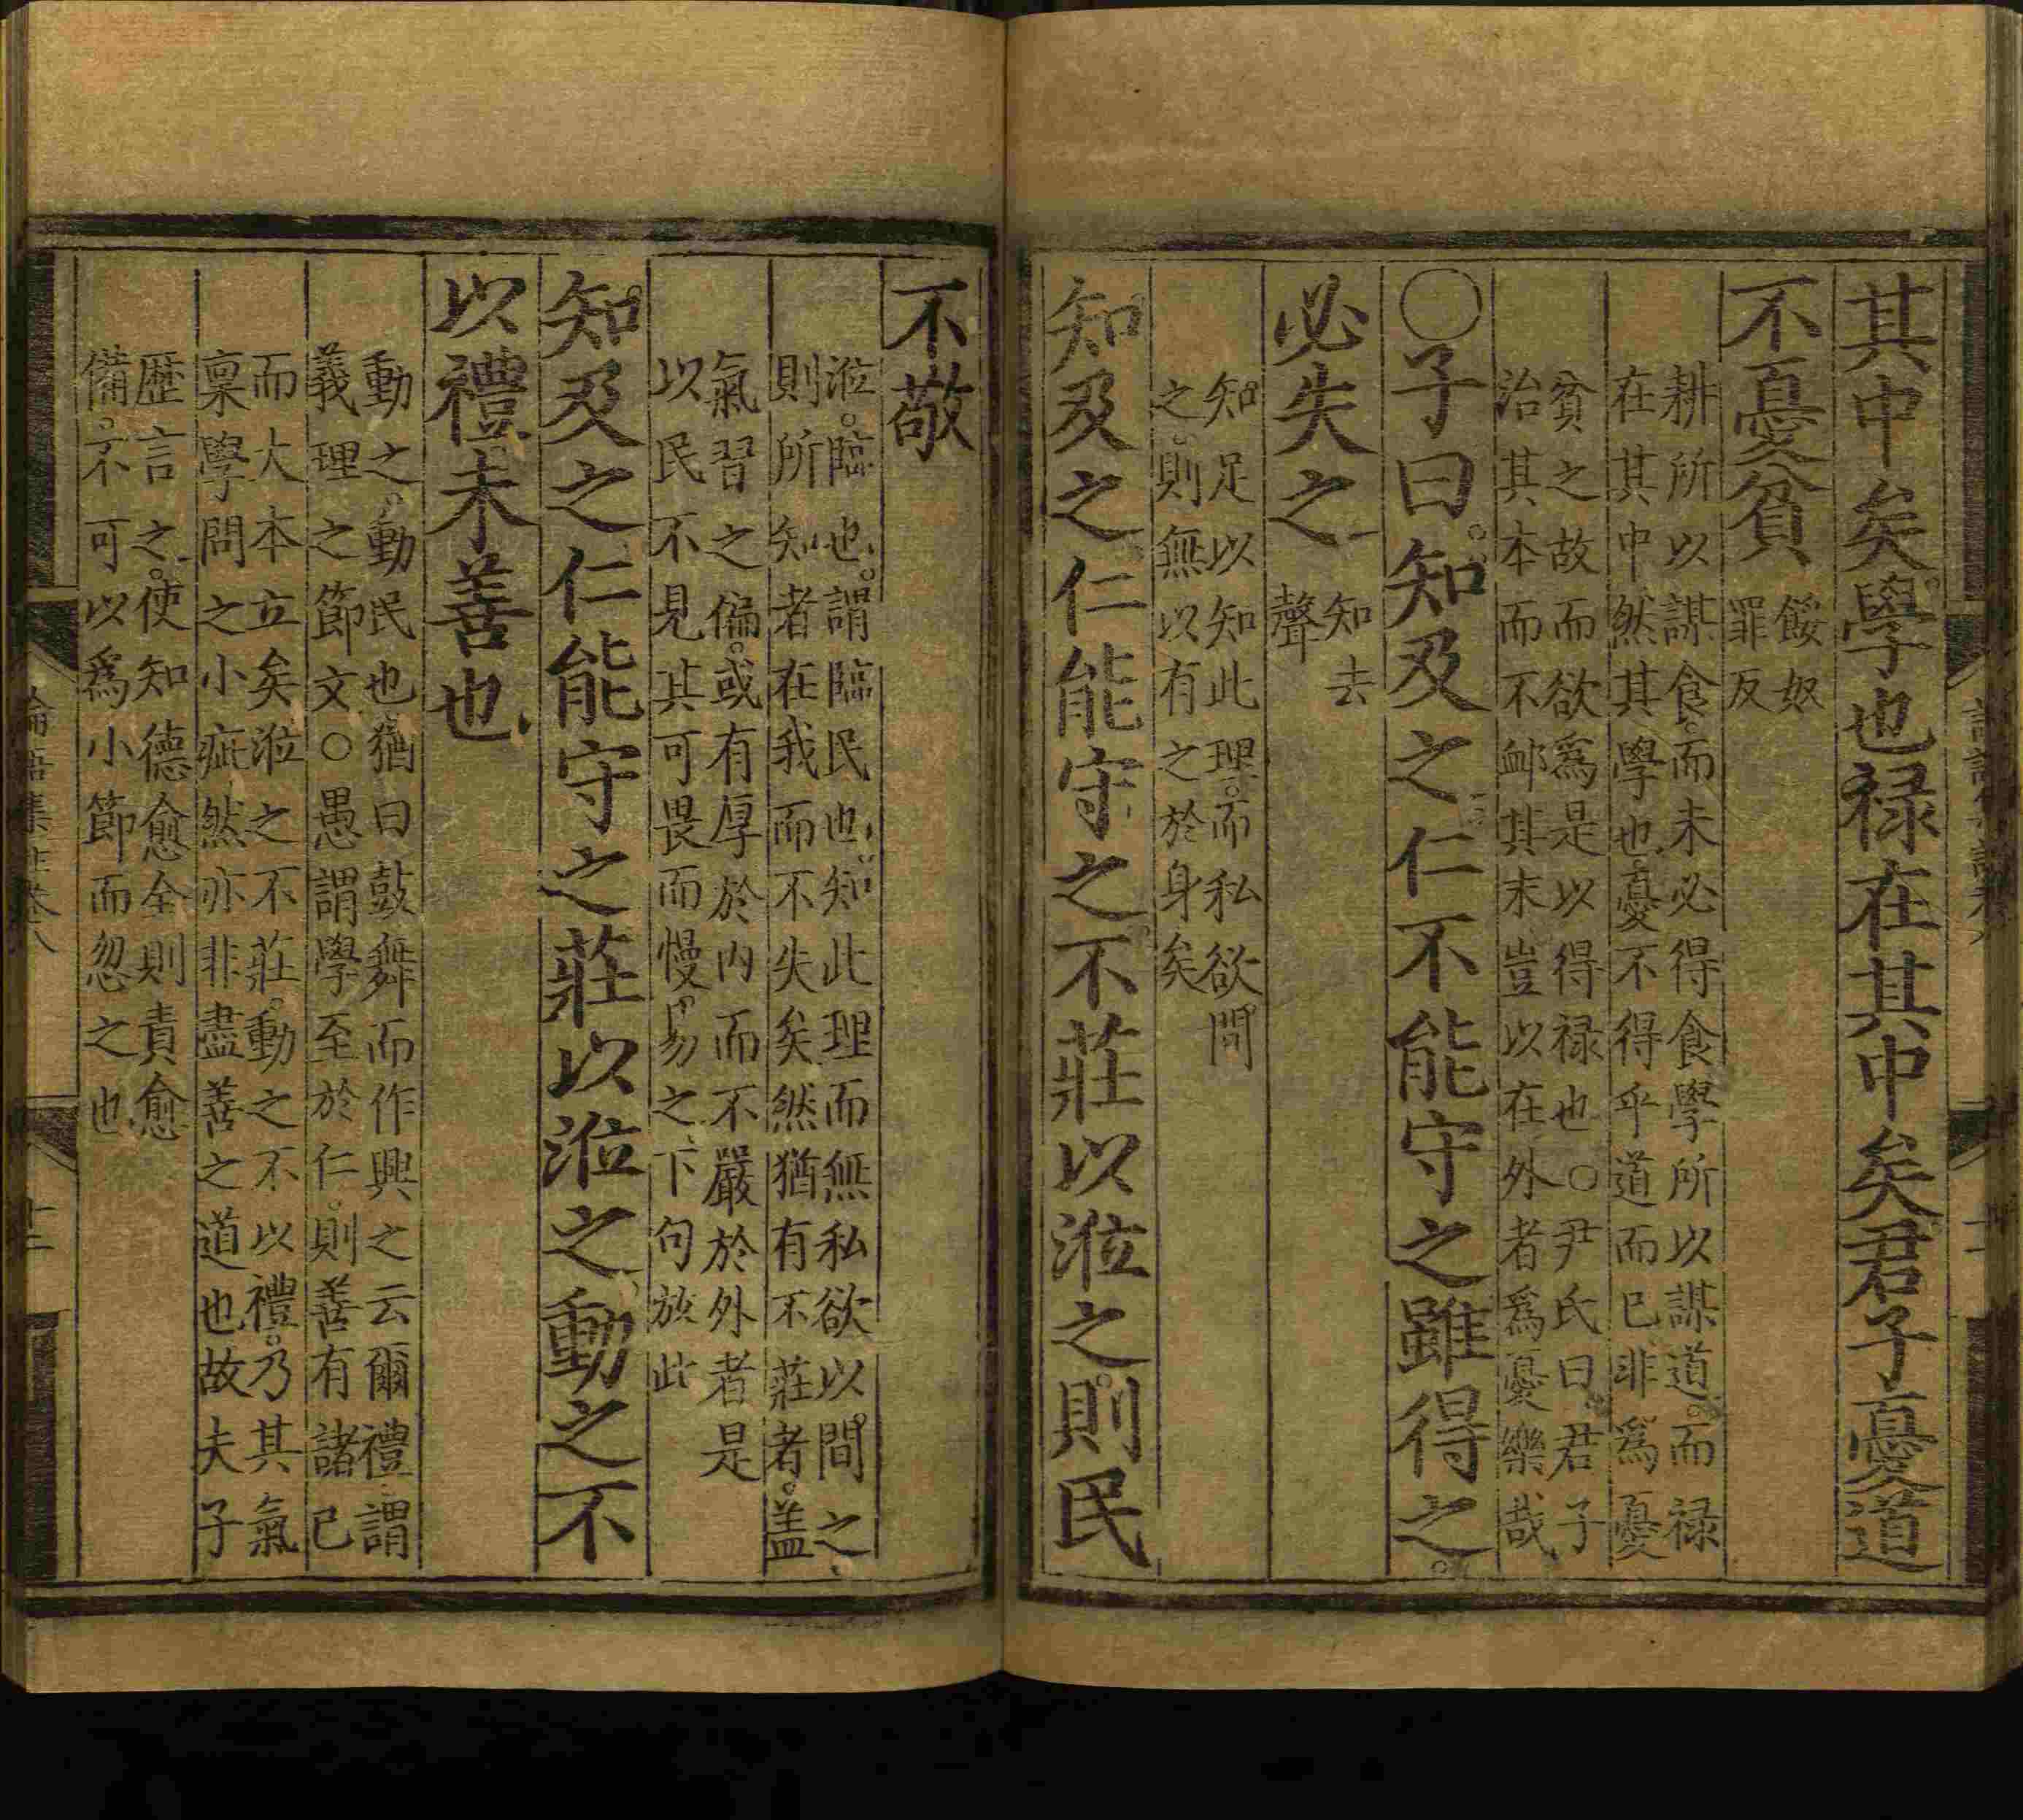 其中矣學也禄在其中矣君子憂道
不憂貧
餒奴
罪反
耕所以謀食而未必得食學所以謀道而禄
在其中然其學也憂不得乎道而已非爲憂
貧之故而欲爲是以得禄也○尹氏曰君子
治其本而不䘏其末豈以在外者爲憂樂哉
○子曰知及之仁不能守之雖得之
必失之
知去
聲
知足以知此理而私欲間
之則無以有之於身矣
知及之仁能守之不莊以涖之則民
不敬
涖臨也謂臨民也知此理而無私欲以間之
則所知者在我而不失矣然猶有不莊者盖
氣習之偏或有厚於內而不嚴於外者是
以民不見其可畏而慢易之下句放此
知及之仁能守之莊以涖之動之不
以禮未善也
動之動民也猶曰鼓舞而作興之云爾禮謂
義理之節文○愚謂學至於仁則善有諸己
而大本立矣涖之不莊動之不以禮乃其氣
稟學問之小疵然亦非盡善之道也故夫子
歷言之使知德愈全則責愈
備不可以爲小節而忽之也
論語集註卷八
十二